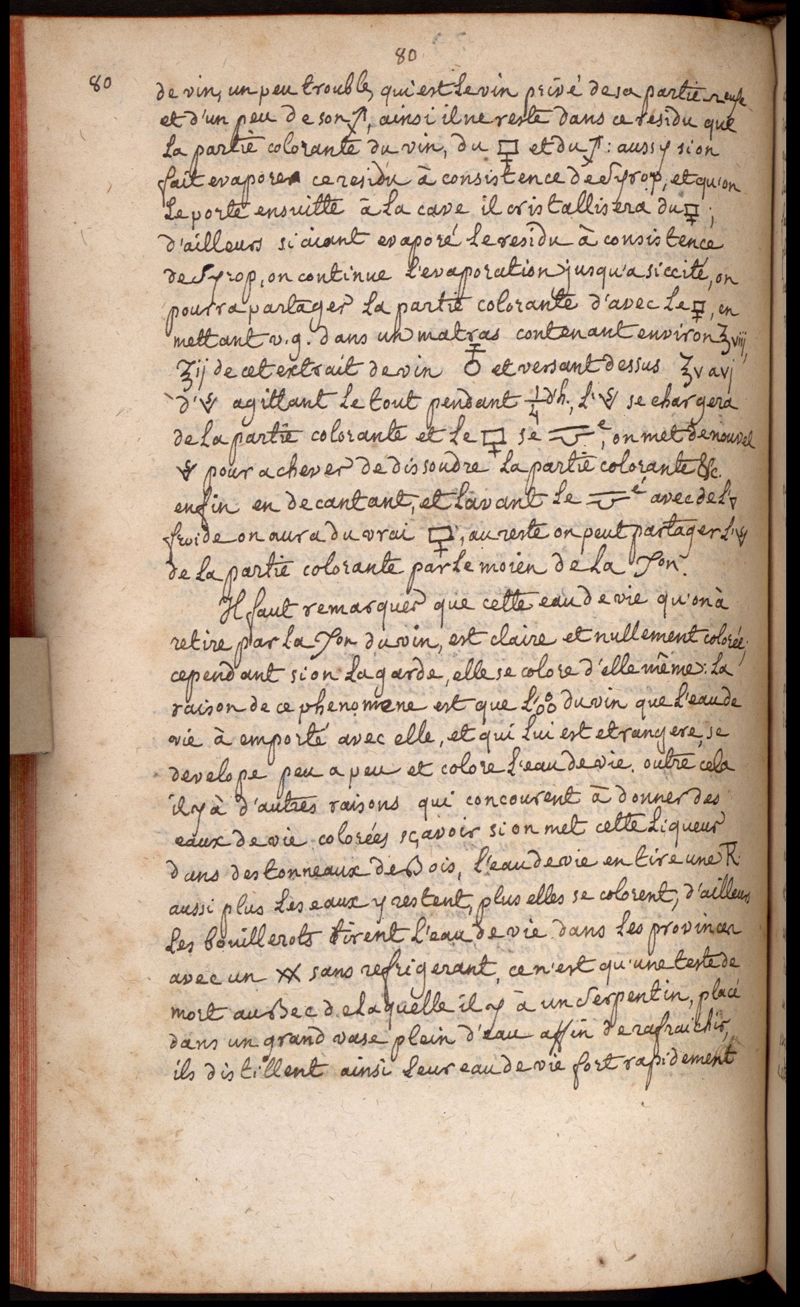 80
80
de vin, un peu trouble, qui est le vin privé de sa partie
et d'un peu de son, ainsi il ne reste dans ce residu que
La partie colorante du vin, du et du : aussy si on
fait evaporer ce residu à consistence de Syrop, et qu'on
Le porte ensuitte à La cave il cristallisera du ;
d'ailleurs si aiant evaporé Le residu à consistence
de Syrop, on continue l'evaporation jusqu'a siccité, on
pourra partager La partie colorante d'avec Le 🜿, en
mettant v.g. dans un matras contenant environ ʒ viij
ʒ ij de cet extrait de vin ♁ et versant dessus ʒ v a vj
d' agittant Le tout pendant 1/4 d'h., L' se chargera
de La partie colorante et Le se , on met de nouvel
pour achever de dissoudre La partie colorante &c.
enfin en decantant, et Lavant Le avec de L'▽
froide on aura du vrai , au reste on peut partager L'
de La partie colorante par Le moien de La
Il faut remarquer que cette eau de vie qu'on à
retire par La du vin, est claire et nullement colorée;
cependant si on La garde, elle se colore d'elle même: La
raison de ce phenomene est que L' du vin que L'eau de
vie à emporté avec elle, et qui Lui est etrangere, se
develope peu a peu et colore L'eau de vie. outre cela
il y à d'autres raisons qui concourent à donner des
eaux de vie colorées sçavoir si on met cette Liqueur
dans des tonneaux de Bois, L'eau de vie en tire une
aussi plus Les eaux y restent, plus elles se colorent, d'ailleurs
Les bouillerots tirent L'eau de vie dans Les provinces
avec un XX sans refrigerant, ce n'est qu'une teste de
mort au Bec de Laquelle il y à un Serpentin, placé
dans un grand vase plein d'eau affin de rafraichir,
ils distillent ainsi Leur eau de vie fort rapidement